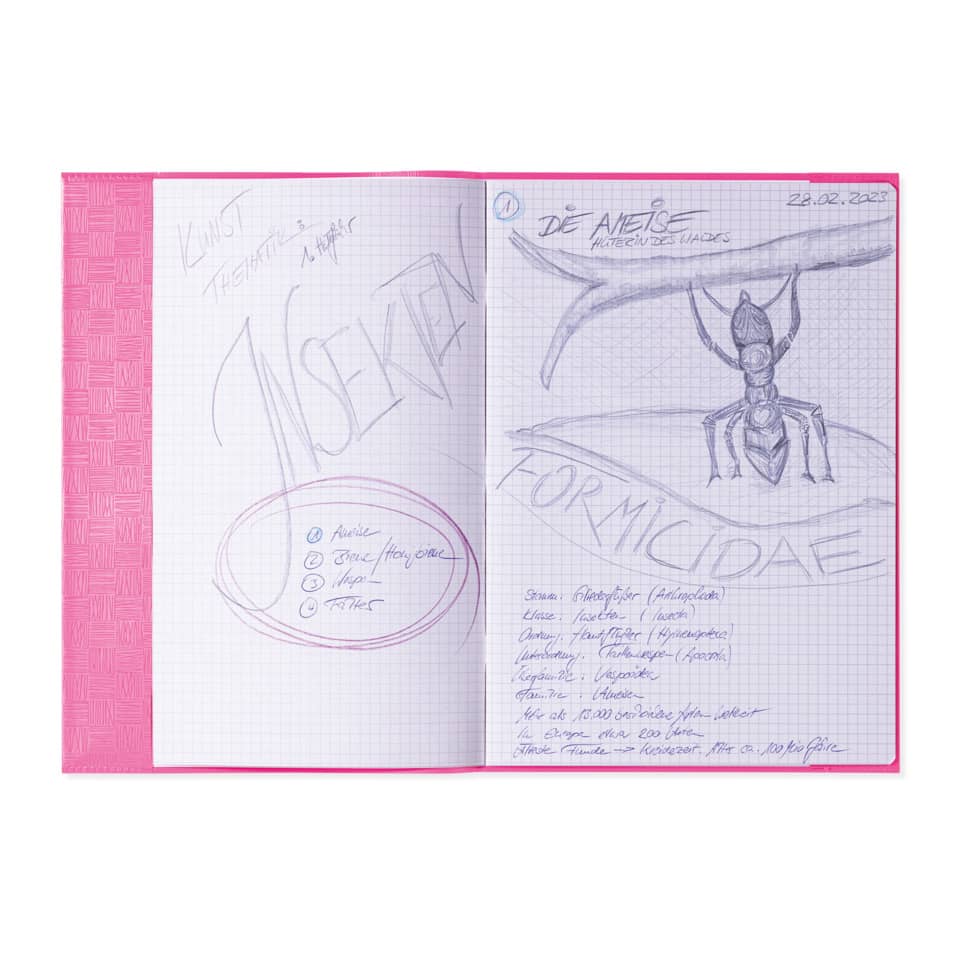 KUNST
THEMATIK:
INSEKTEN
1 Ameise
2 Biene/Honigbiene
3 Wespe
4 Falter
1
28.02.2023
DIE AMEISE
HÜTERIN DES WALDES
FORMICIDAE
Stamm: Gliederfüßer (Arthropoda)
Klasse: Insekten (Insecta)
Ordnung: Hautflügler (Hymenoptera)
Unterordnung: Taillenwespen (Apocrita)
Überfamilie: Vespoidea
Familie: Ameisen
Mehr als 13.000 beschriebene Arten bekannt
In Europa etwa 200 Arten
Älteste Funde → Kreidezeit. Alter ca. 100 Mio Jahre